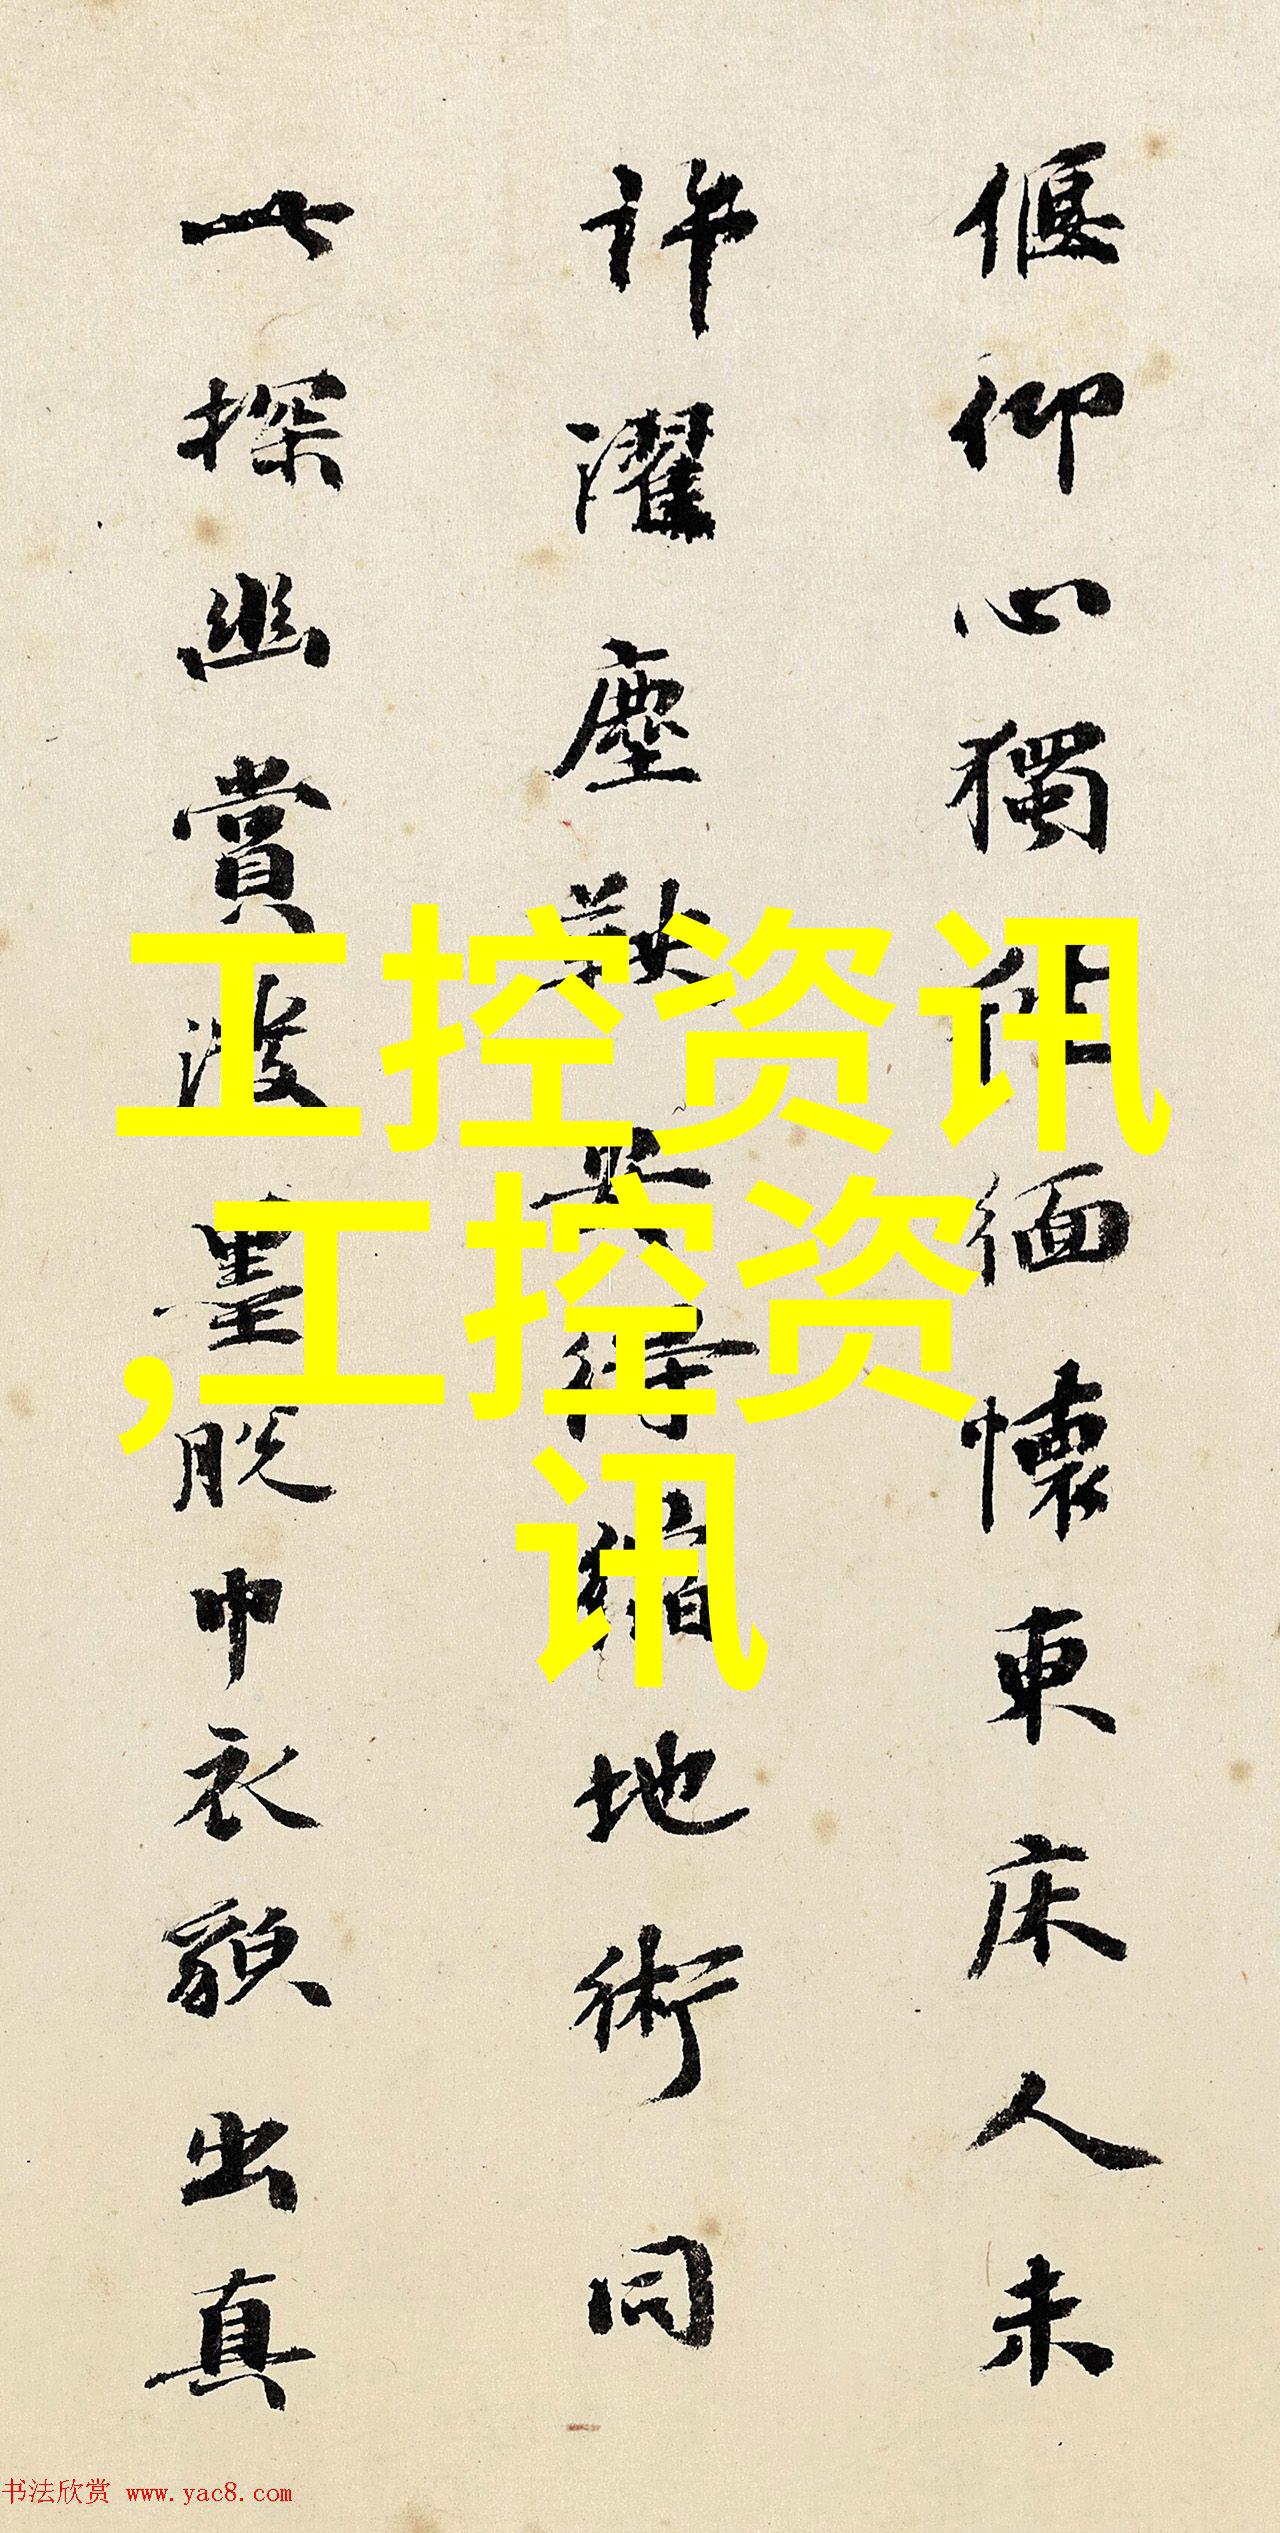 偃仰心獨 緬懷東床人未
許濯塵 地術同
一探幽賞 墨脱巾衣顏出真
工控资讯
,工控资
讯
书法欣赏 www.yac8.com